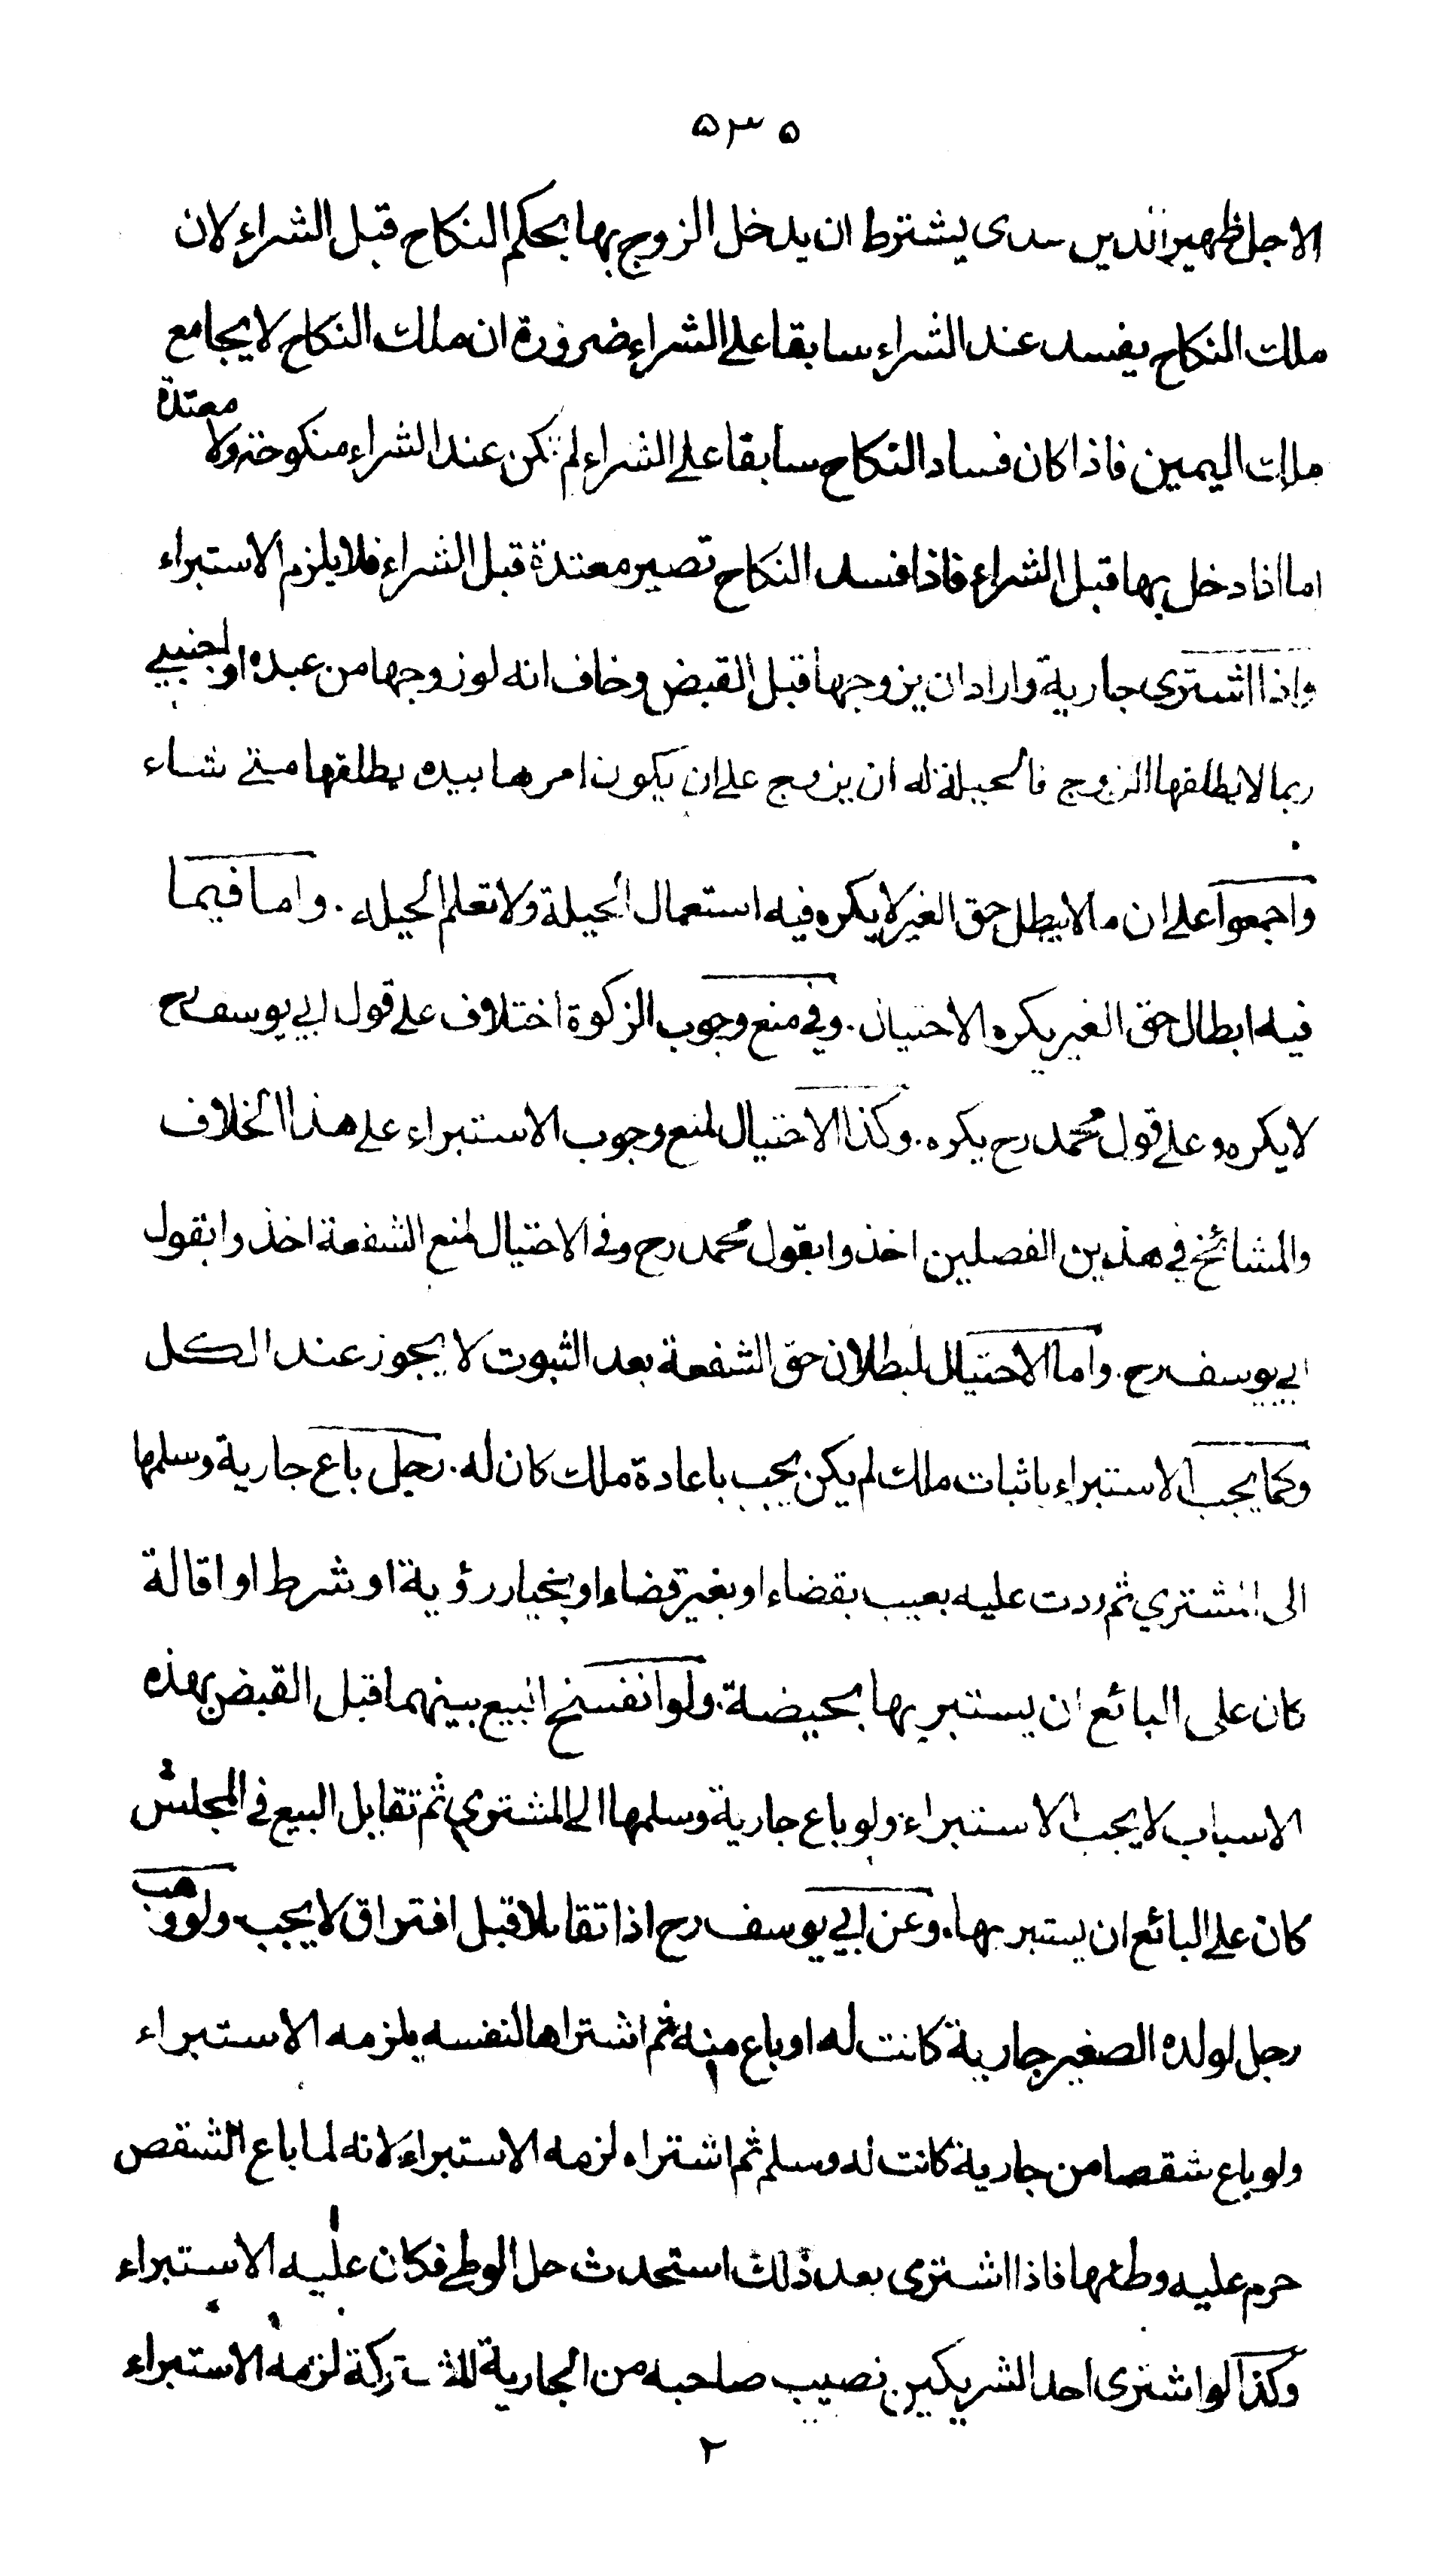 ۵۳۵
الاجل ظهير الدين سدى يشترط ان يدخل الزوج بها بحكم النكاح قبل الشراء لان
ملك النكاح يفسد عند الشراء سابقا على الشراء ضرورة ان ملك النكاح لا يجامع
ملك اليمين فاذا كان فساد النكاح سابقا على الشراء لم تكن عند الشراء منكوحة ولا معتدة
اما اذا دخل بها قبل الشراء فاذا فسد النكاح تصير معتدة قبل الشراء فلا يلزم الاستبراء
واذا اشترى جارية واراد ان يزوجها قبل القبض وخاف انه لو زوجها من عبده او اجنبي
ربما لا يطلقها الزوج فالحيلة له ان يزوج على ان يكون امرها بيده يطلقها متى شاء
واجمعوا على ان ما لا يبطل حق الغير لا يكره فيه استعمال الحيلة ولا تعلم الحيله . واما فيما
فيه ابطال حق الغير يكره الاحتيال . وفي منع وجوب الزكوة اختلاف على قول ابي يوسف رح
لا يكره وعلى قول محمد رح يكره . وكذا الاحتيال لمنع وجوب الاستبراء على هذا الخلاف
والمشائخ في هذين الفصلين اخذوا بقول محمد رح وفي الاحتيال لمنع الشفعة اخذوا بقول
ابي يوسف رح . واما الاحتيال لبطلان حق الشفعة بعد الثبوت لا يجوز عند الكل
وكما يجب الاستبراء باثبات ملك لم يكن يجب باعادة ملك كان له . رجل باع جارية وسلمها
الى المشتري ثم ردت عليه بعيب بقضاء او بغير قضاء او بخيار رؤية او شرط او اقالة
كان على البائع ان يستبر بها بحيضة . ولو انفسخ البيع بينهما قبل القبض بهذه
الاسباب لا يجب الاستبراء ولو باع جارية وسلمها الى المشتري ثم تقايل البيع في المجلس
كان على البائع ان يستبر بها . وعن ابي يوسف رح اذا تقايلا قبل افتراق لا يجب ولو وهب
رجل لولده الصغير جارية كانت له او باع منه ثم اشتراها لنفسه يلزمه الاستبراء
ولو باع شقصا من جارية كانت له وسلم ثم اشتراه لزمه الاستبراء لانه لما باع الشقص
حرم عليه وطئها فاذا اشترى بعد ذلك استحدث حل الوطي فكان عليه الاستبراء
وكذا لو اشترى احد الشريكين نصيب صاحبه من الجارية المشتركة لزمه الاستبراء
۲